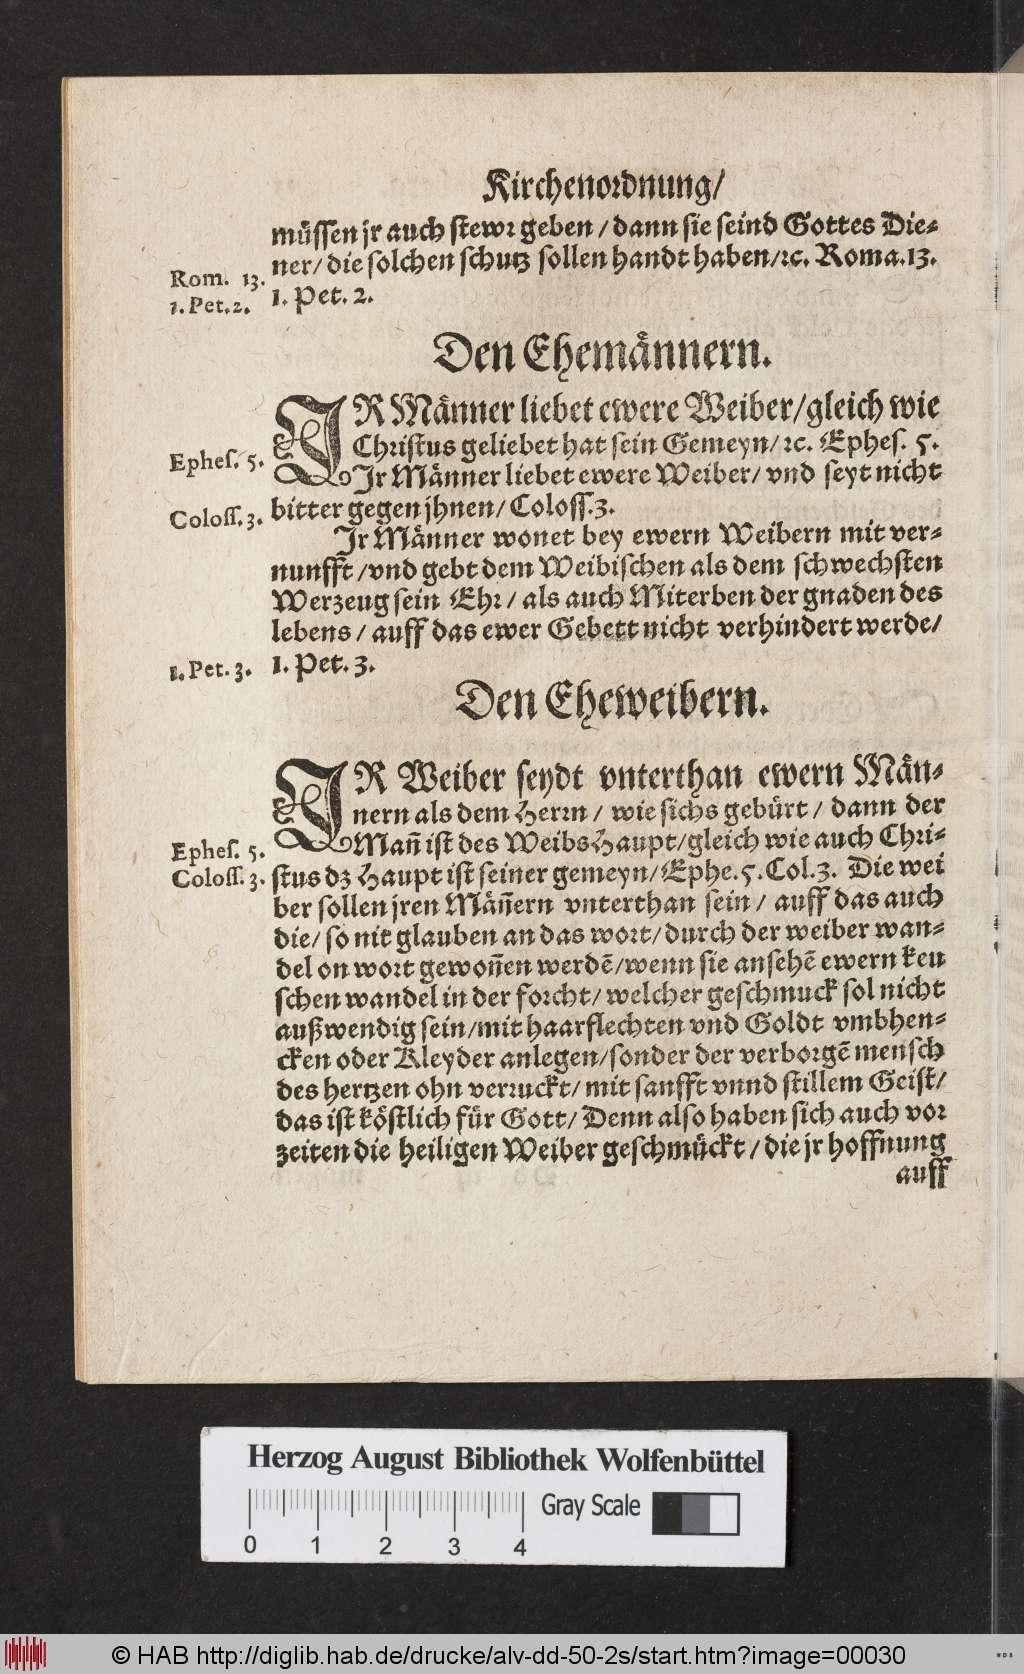 Kirchenordnung/
müssen jr auch stewr geben / dann sie seind Gottes Die-
ner/ die solchen schutz sollen handt haben/ꝛc. Roma.13.
Rom. 13.
1. Pet. 2.
1. Pet. 2.
Den Ehemännern.
IR Männer liebet ewere Weiber/gleich wie
Christus geliebet hat sein Gemeyn/ ꝛc. Ephes. 5.
Ephes. 5.
Jr Männer liebet ewere Weiber/ vnd seyt nicht
bitter gegen jhnen/ Coloss.3.
Coloss. 3.
Jr Männer wonet bey ewern Weibern mit ver-
nunfft /vnd gebt dem Weibischen als dem schwechsten
Werzeug sein Ehr / als auch Miterben der gnaden des
lebens / auff das ewer Gebett nicht verhindert werde/
1. Pet. 3.
1. Pet. 3.
Den Eheweibern.
IR Weiber seydt vnterthan ewern Män-
nern als dem Herrn / wie sichs gebürt / dann der
Man̄ ist des Weibs Haupt/gleich wie auch Chri-
Ephes. 5.
Coloss. 3.
stus dz Haupt ist seiner gemeyn/ Ephe.5.Col.3. Die wei
ber sollen jren Män̄ern vnterthan sein / auff das auch
die/ so nit glauben an das wort/ durch der weiber wan-
del on wort gewon̄en werdē/wenn sie ansehē ewern keu
schen wandel in der forcht/ welcher geschmuck sol nicht
außwendig sein/mit haarflechten vnd Goldt vmbhen-
cken oder Kleyder anlegen/sonder der verborgē mensch
des hertzen ohn verruckt/ mit sanfft vnnd stillem Geist/
das ist köstlich für Gott/ Denn also haben sich auch vor
zeiten die heiligen Weiber geschmückt / die jr hoffnung
auff
Herzog August Bibliothek Wolfenbüttel
Gray Scale
0 1 2 3 4
© HAB http://diglib.hab.de/drucke/alv-dd-50-2s/start.htm?image=00030